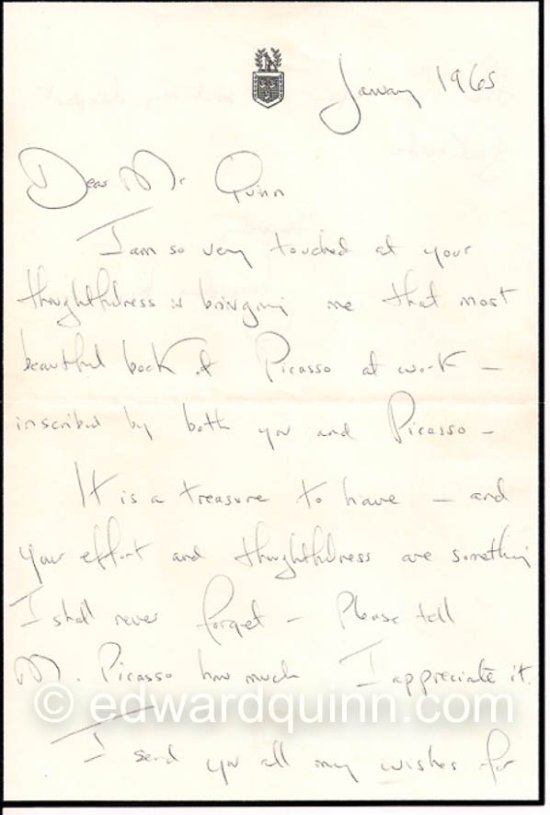 January 1965
Dear Mr Quinn
I am so very touched at your
thoughtfulness in bringing me that most
beautiful book of Picasso at work —
inscribed by both you and Picasso —
It is a treasure to have — and
your effort and thoughtfulness are something
I shall never forget — Please tell
M. Picasso how much I appreciate it.
© edwardquinn.com
I send you all my wishes for